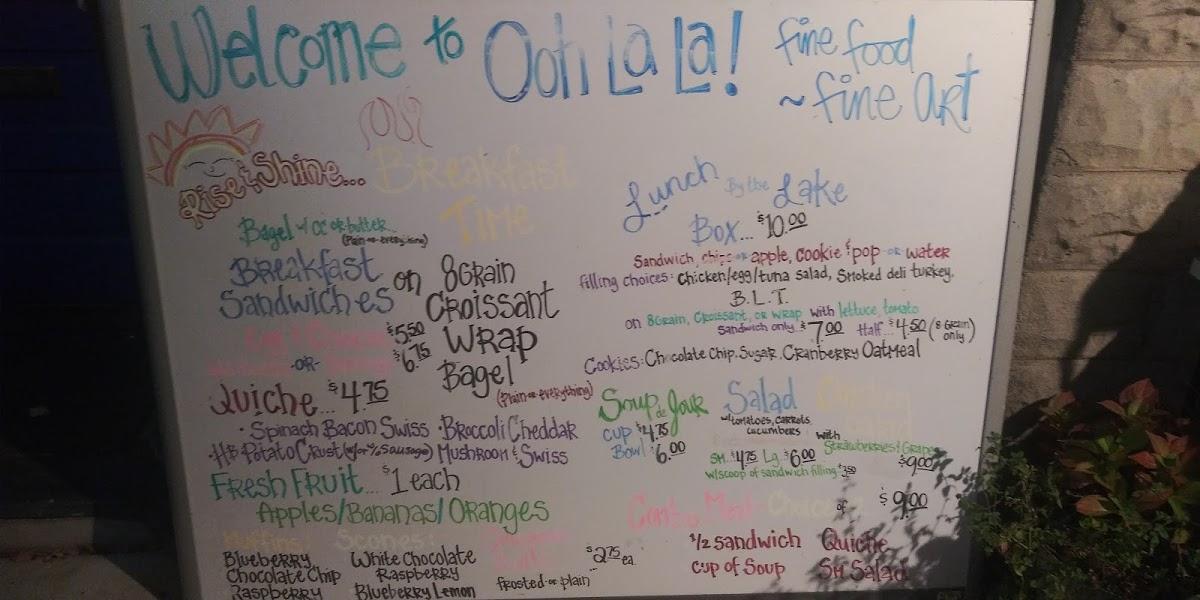 Welcome to Ooh La La!
fine food
~fine art
Rise & Shine...
Breakfast
Time
Bagel w/ cc or butter
(Plain or everything)
Breakfast
Sandwiches on
8 Grain
Croissant
Wrap
Bagel
(Plain or everything)
$5.50
-OR-
$6.75
Quiche... $4.75
· Spinach Bacon Swiss · Broccoli Cheddar
Mushroom & Swiss
Fresh Fruit... $1 each
Apples/Bananas/Oranges
Muffins:
Blueberry
Chocolate Chip
Raspberry
Scones:
White Chocolate
Raspberry
Blueberry Lemon
frosted or plain
$2.75 ea.
Lunch By the Lake
Box... $10.00
Sandwich, chips or apple, cookie & pop or water
filling choices: Chicken/egg/tuna salad, Smoked deli turkey,
B.L.T.
on 8 Grain, Croissant, or wrap with lettuce, tomato
Sandwich only $7.00 Half... $4.50 (8 Grain only)
Cookies: Chocolate Chip. Sugar. Cranberry Oatmeal
Soup de Jour
Cup $4.75
Bowl $6.00
Salad
w/tomatoes, carrots,
cucumbers
Sm. $4.75 Lg. $6.00
w/scoop of sandwich filling
with
Strawberries & Grapes
$9.00
Combo Meal Choice 2 of $9.00
1/2 Sandwich Quiche
Cup of Soup Sm Salad